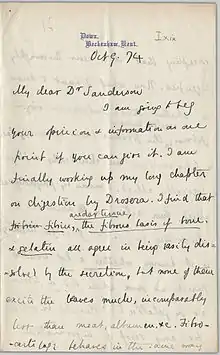 Down,
Beckenham, Kent.
Oct 9. 74
My dear Dr Sanderson
I am going to beg
your opinion & information on one
point if you can give it. I am
finally working up my long chapter
on digestion by Drosera. I find that
areolar tissue,
fibrin fibrin, the fibrous basis of bone
& gelatin all agree in being easily dis-
solved by the secretion, but none of them
excite the leaves much, incomparably
less than meat, albumen, &c. Fibro-
cartilage behaves in the same way